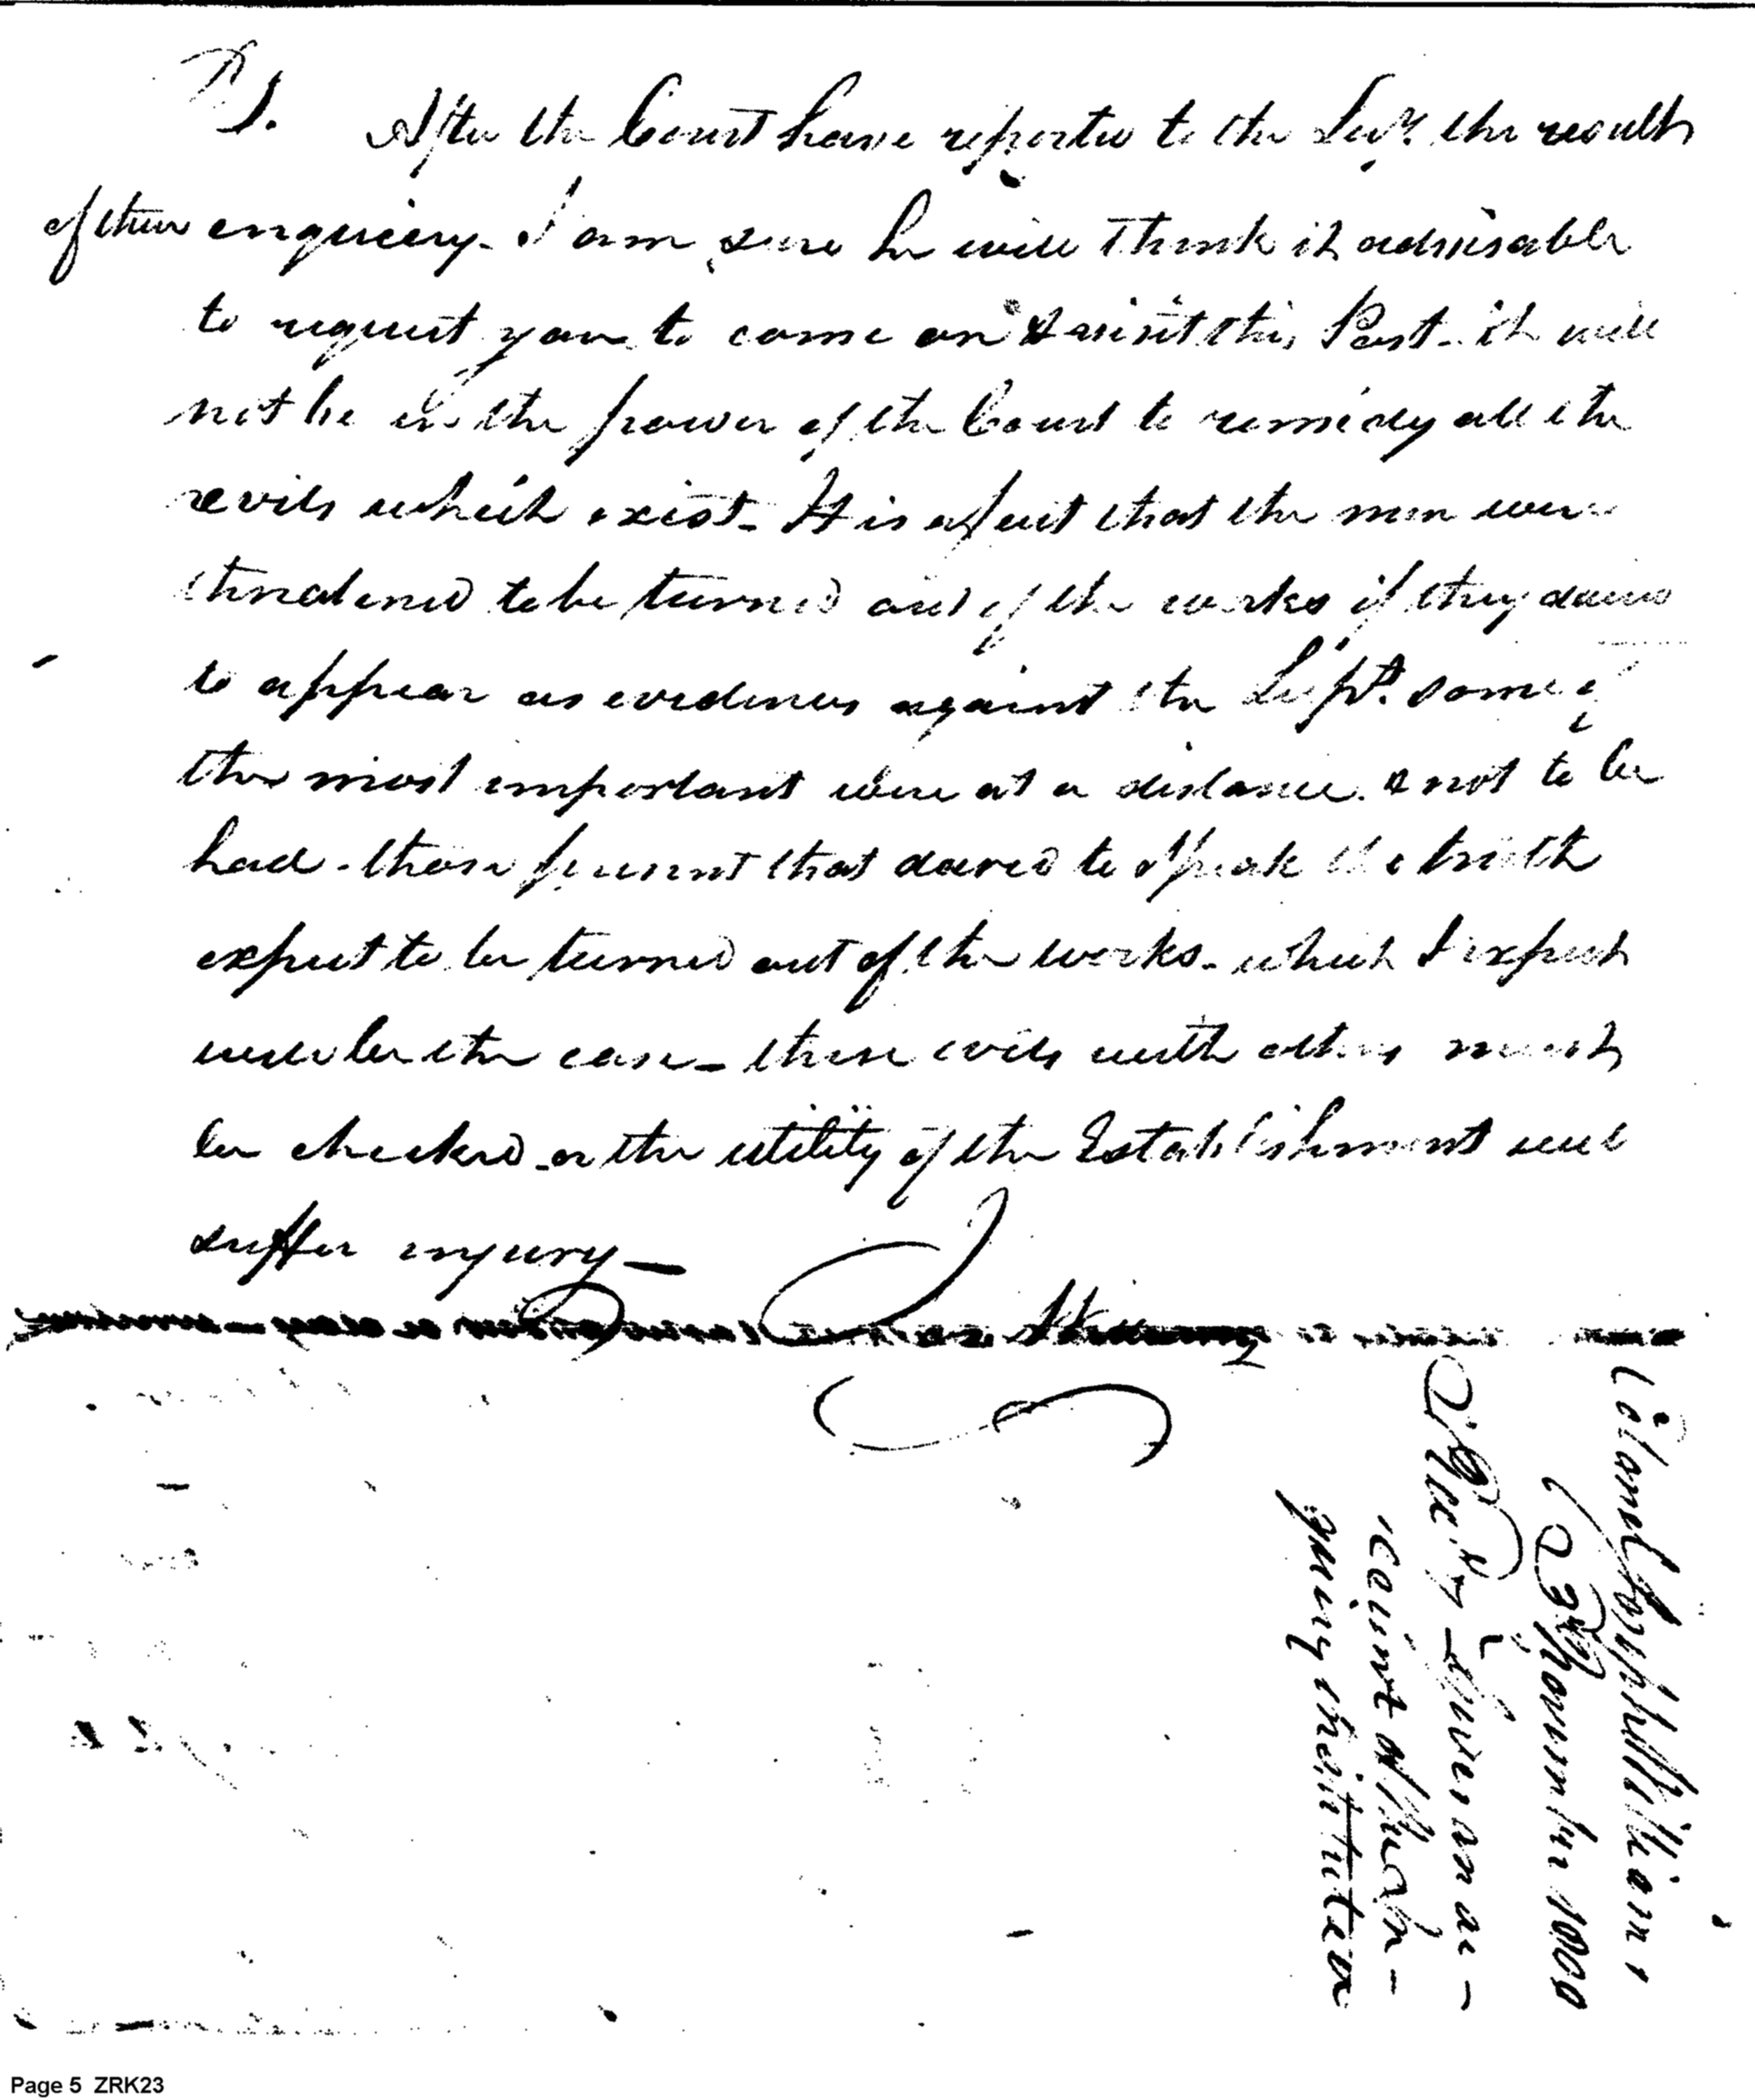 PS. After the Court have reported to the Secy. the result
of their enquiery - I am sure he will think it advisable
to request you to come on & visit this Post - it will
not be in the power of the Court to remidy all the
evils which exist - It is a fact that the men were
threatened to be turned out of the works if they dared
to appear as evidences against the Supt. some of
the most important were at a distance & not to be
had - those present that dared to speak the truth
expect to be turned out of the works - which I expect
will be the case - these evils with others must
be checked or the utility of the Establishment will
suffer injury -
Colonel Jonth Williams
23d November 1808
giving an ac-
count of
institution
Page 5 ZRK23